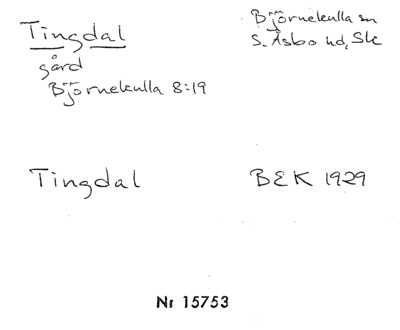 Tingdal
Björnekulla sn
S. Åsbo hd, Sk
gård
Björnekulla 8:19
Tingdal
BEK 1929
Nr 15753